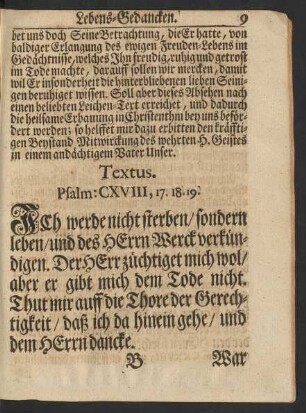 Lebens-Gedancken. 9
bet uns doch Seine Betrachtung, die Er hatte, von
baldiger Erlangung des ewigen Freuden-Lebens im
Gedächtnisse, welches Ihn freudig, ruhig und getrost
im Tode machte, darauff sollen wir mercken, damit
wil Er insonderheit die hinterbliebenen lieben Seini-
gen beruhiget wissen. Soll aber dieses Absehen nach
einen beliebten Leichen-Text erreichet, und dadurch
die heilsame Erbauung in Christenthm bey uns beför-
dert werden; so helffet mir dazu erbitten den kräffti-
gen Beystand Mitwirckung des wehrten H. Geistes
in einem andächtigem Vater Unser.
Textus.
Psalm: CXVIII, 17. 18. 19:
ICh werde nicht sterben / sondern
leben / und des HErrn Werck verkün-
digen. Der HErr züchtiget mich wol /
aber er gibt mich dem Tode nicht.
Thut mir auff die Thore der Gerech-
tigkeit / daß ich da hinein gehe / und
dem HErrn dancke.
B War